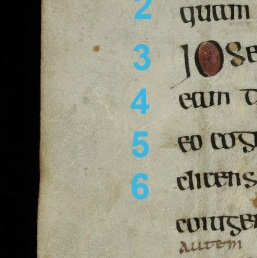 2 quam
3 JOSe
4 eam t
5 eo cog
6 dicens
coniuge
autem